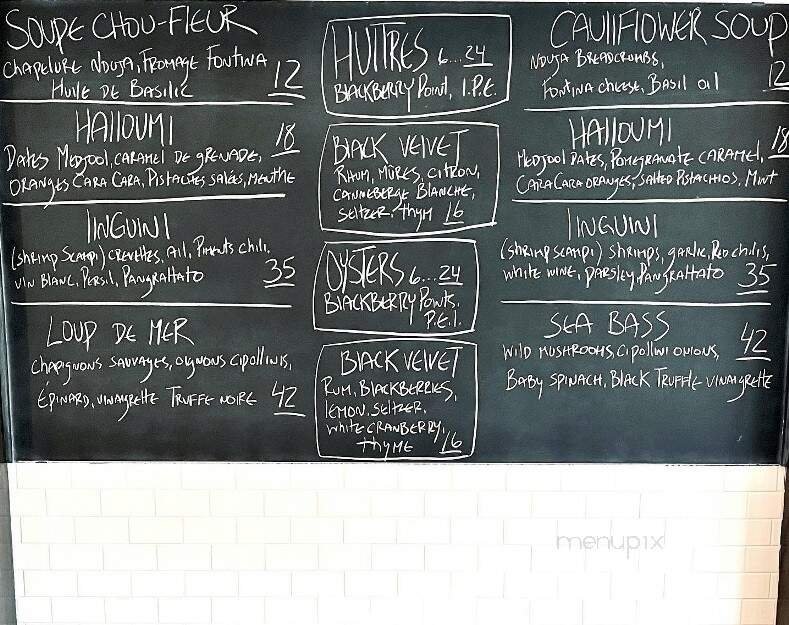 SOUPE CHOU-FLEUR
CHAPELURE NDUJA, FROMAGE FONTINA
HUILE DE BASILIC 12
HALLOUMI 18
DATES MEDJOOL, CARAMEL DE GRENADE,
ORANGES CARA CARA, PISTACHES SALÉES, MENTHE
LINGUINI
(SHRIMP SCAMPI) CREVETTES, AIL, PIMENTS CHILI,
VIN BLANC, PERSIL, PANGRATTATO 35
LOUP DE MER
CHAPIGNONS SAUVAGES, OIGNONS CIPOLLINIS,
ÉPINARD, VINAIGRETTE TRUFFE NOIRE 42
HUITRES 6...24
BLACKBERRY POINT, I.P.E.
BLACK VELVET
RHUM, MÛRES, CITRON,
CANNEBERGE BLANCHE,
SELTZER, THYM 16
OYSTERS 6...24
BLACKBERRY POINTS,
P.E.I.
BLACK VELVET
RUM, BLACKBERRIES,
LEMON, SELTZER,
WHITE CRANBERRY,
THYME 16
CAULIFLOWER SOUP
NDUJA BREADCRUMBS,
FONTINA CHEESE, BASIL OIL 12
HALLOUMI 18
MEDJOOL DATES, POMEGRANATE CARAMEL,
CARA CARA ORANGES, SALTED PISTACHIOS, MINT
LINGUINI
(SHRIMP SCAMPI) SHRIMPS, GARLIC, RED CHILIS,
WHITE WINE, PARSLEY, PANGRATTATO 35
SEA BASS
WILD MUSHROOMS, CIPOLLINI ONIONS, 42
BABY SPINACH, BLACK TRUFFLE VINAIGRETTE
menupix